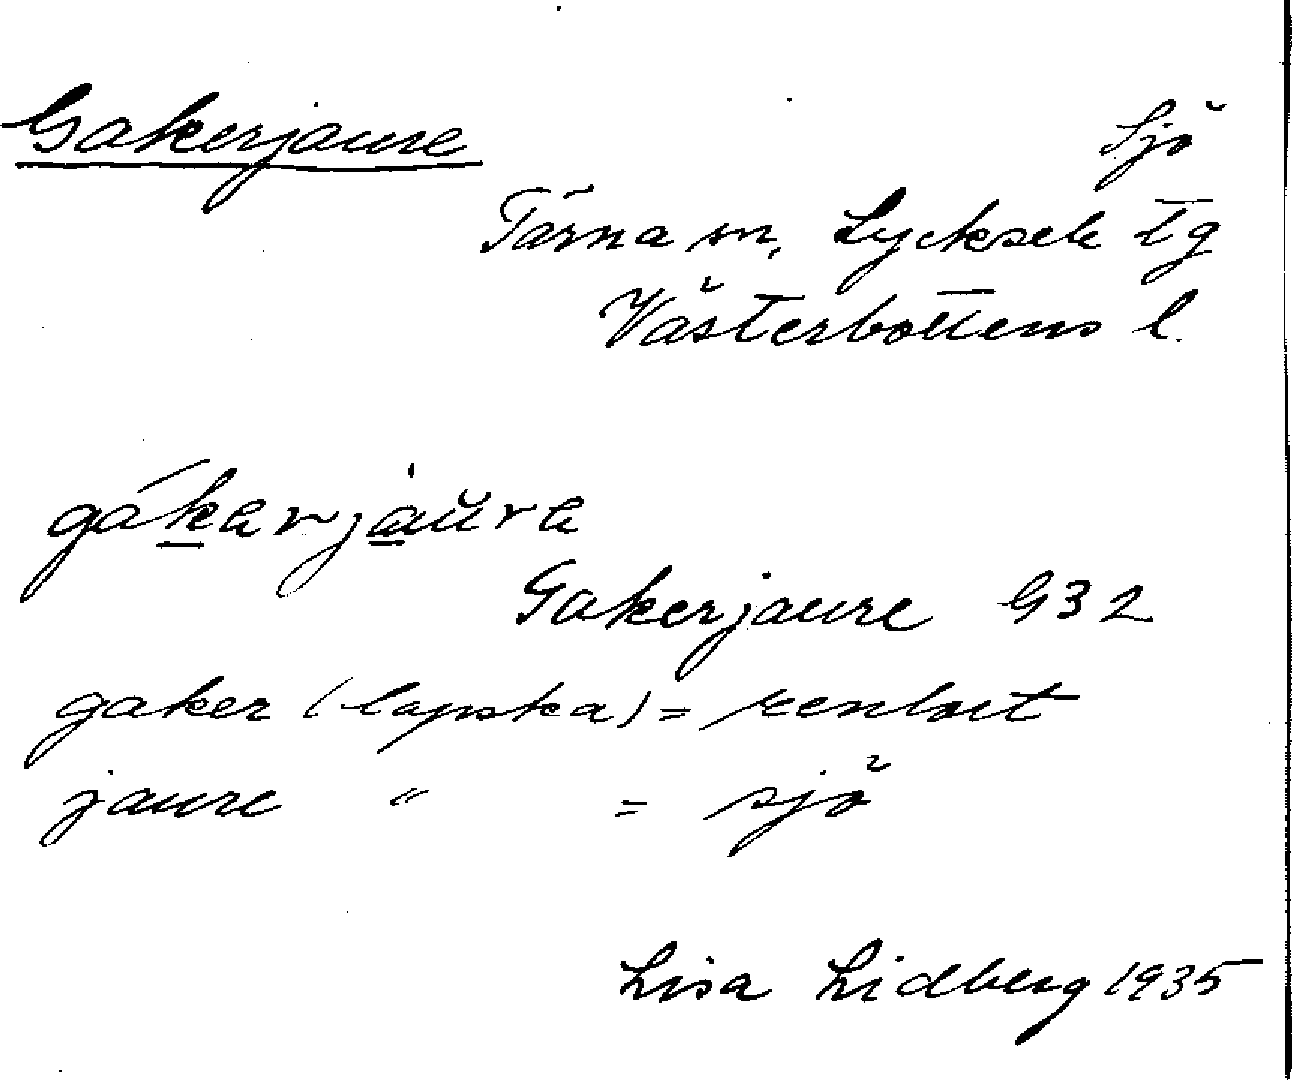 Gakerjaure Sjö
Tärna sn, Lycksele tg
Västerbottens l.
gákarjaŭra
Gakerjaure G32
gaker (lapska) = renbet
jaure " = sjö
Lisa Lidberg 1935